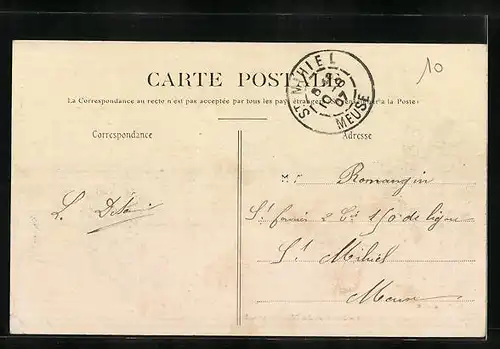 10
CARTE POSTALE
La Correspondance au recto n'est pas acceptée par tous les pays étrangers
à la Poste)
ST MIHIEL
MEUSE
Correspondance
Adresse
Mr Romangin
St fourrier 2e Cie 150 de ligne
St Mihiel
Meuse
L.